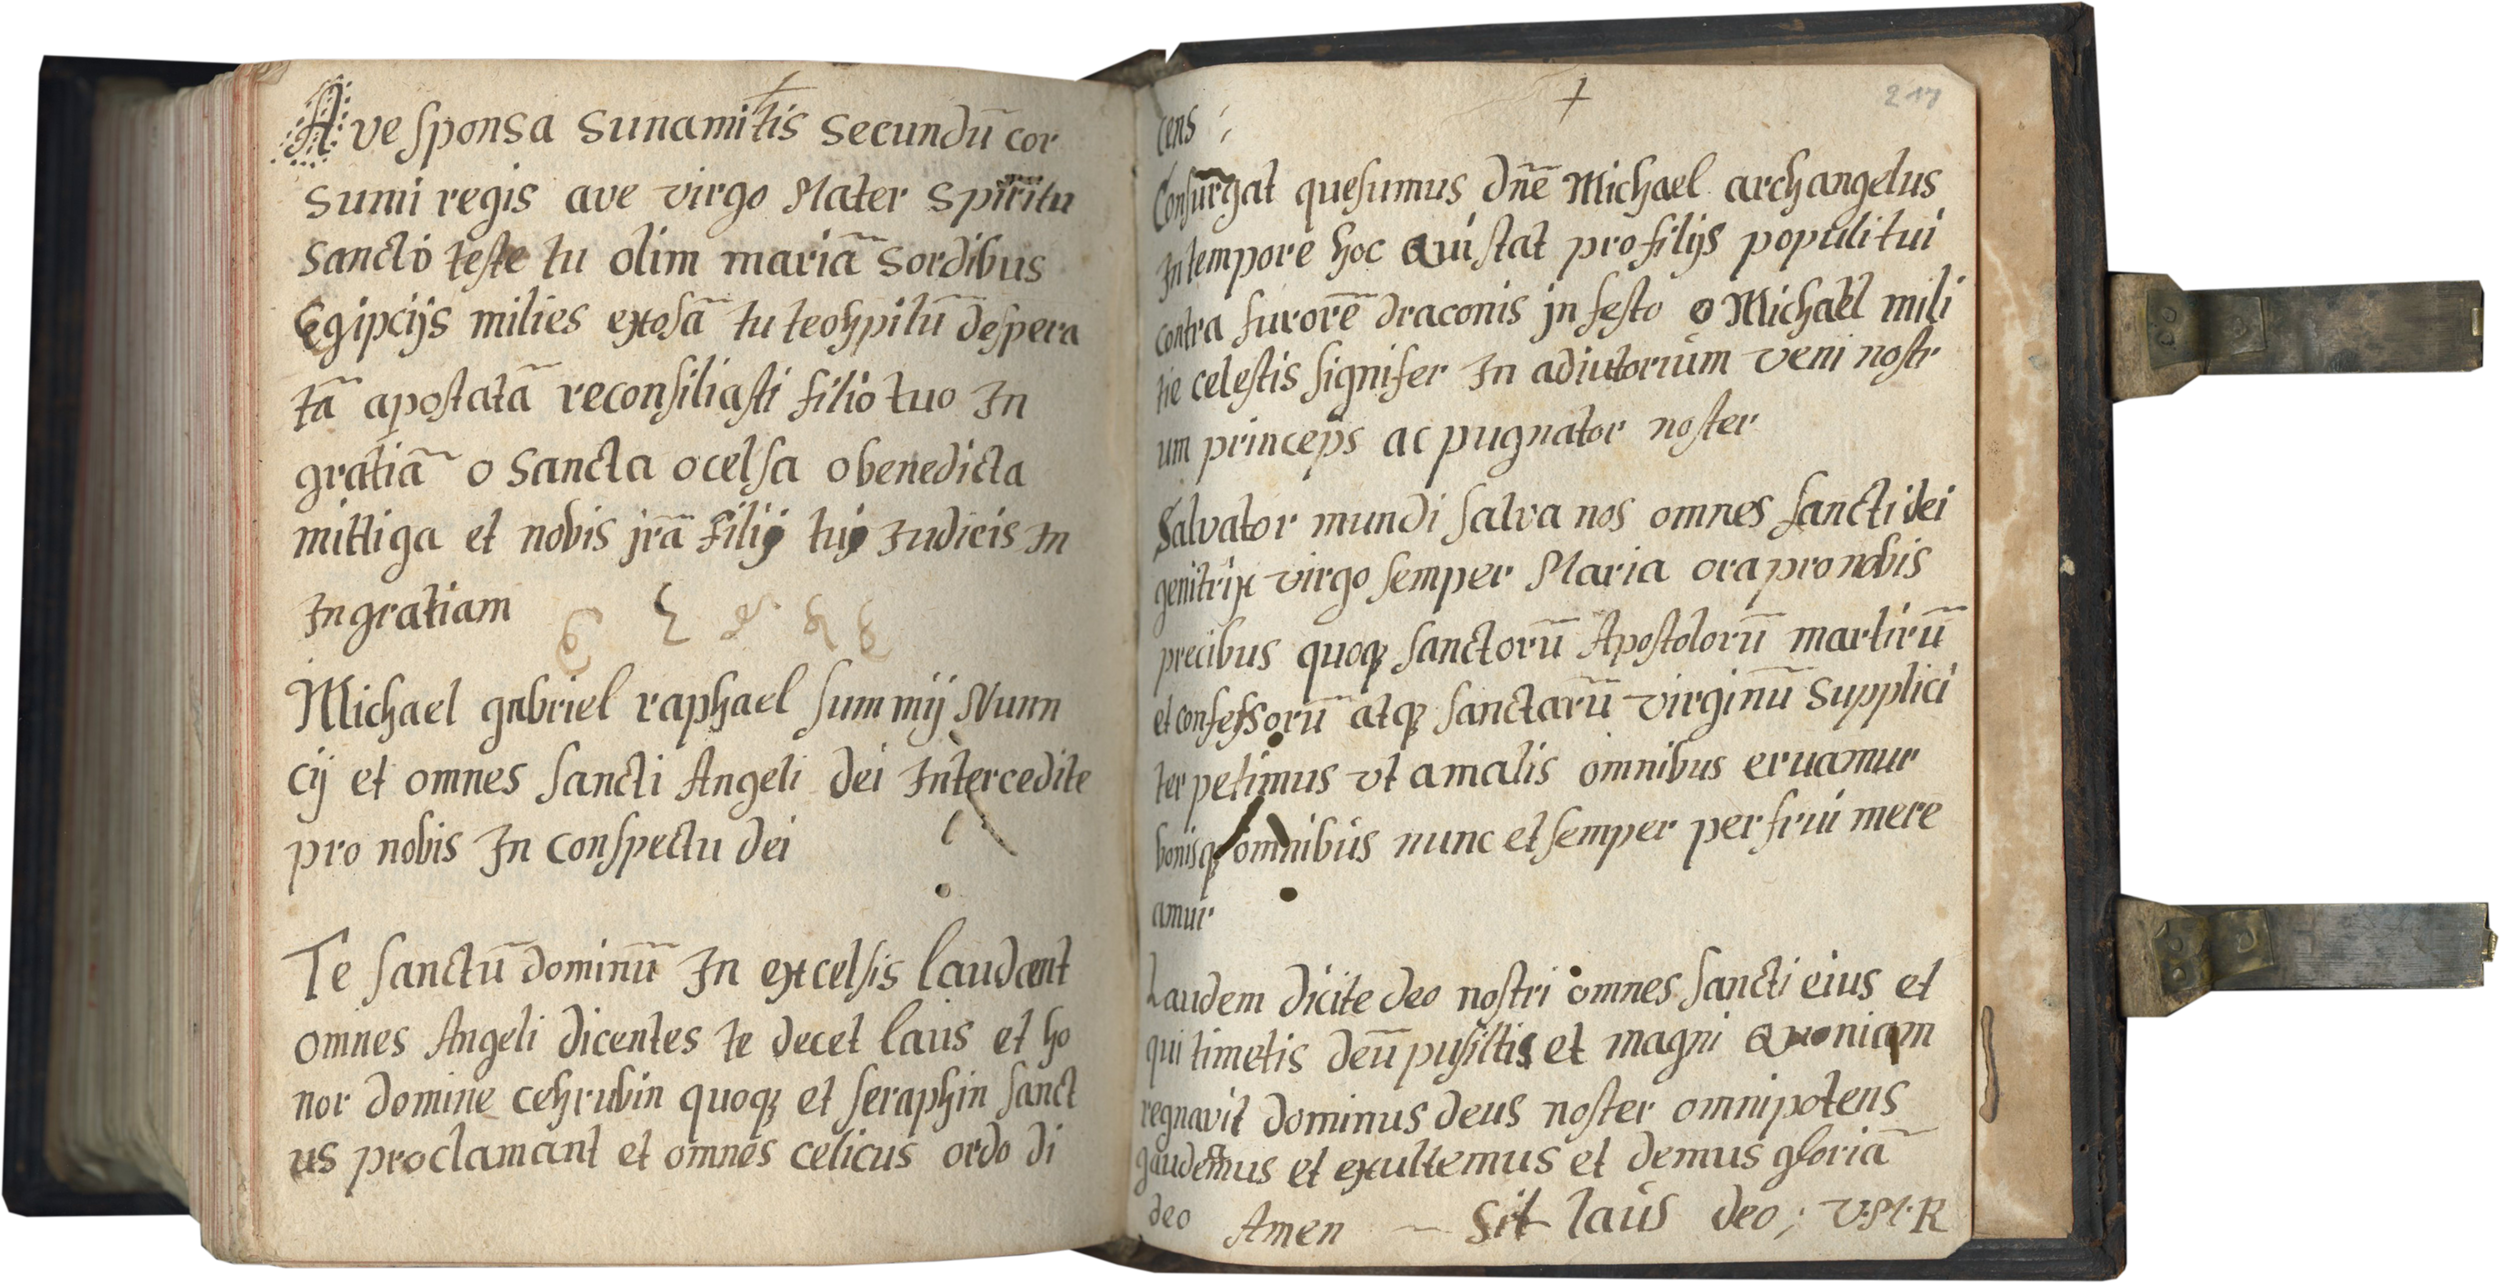 Ave sponsa sunamitis secundū cor
sumi regis ave virgo Mater spiritu
sancto teste tu olim mariā sordibus
Egipcijs milies exosā tu teohpilū despera
tā apostatā reconsiliasti filio tuo In
gratiā o sancta o celsa o benedicta
mittiga et nobis jrā filij tuj Iudicis In
Ingratiam
Michael gabriel raphael summij Nunn
cij et omnes sancti Angeli dei Intercedite
pro nobis In conspectu dei
Te sanctū dominū In excelsis laudant
omnes Angeli dicentes te decet laus et ho
nor domine cehrubin quoq et seraphin sanct
us proclamant et omnes celicus ordo di
+
217
cens ;
Consurgat quesumus dnē Michael archangelus
In tempore hoc Qui stat pro filijs populi tui
contra furorē draconis jn festo o Michael mili
tie celestis signifer In adiutorium veni nostr
um princeps ac pugnator noster
Salvator mundi salva nos omnes sancti dei
genitrix virgo semper Maria ora pro nobis
precibus quoq sanctorū Apostolorū martirū
et confessorū atq sanctarū virginū supplici
ter petimus vt a malis omnibus eruamur
bonisq omnibus nunc et semper perfrui mere
amur
Laudem dicite deo nostri omnes sancti eius et
qui timetis deū pusiltis et magni Quoniam
regnavit dominus deus noster omnipotens
gaudemus et exultemus et demus gloriā
deo Amen ~ Sit laus deo ; V·M·R